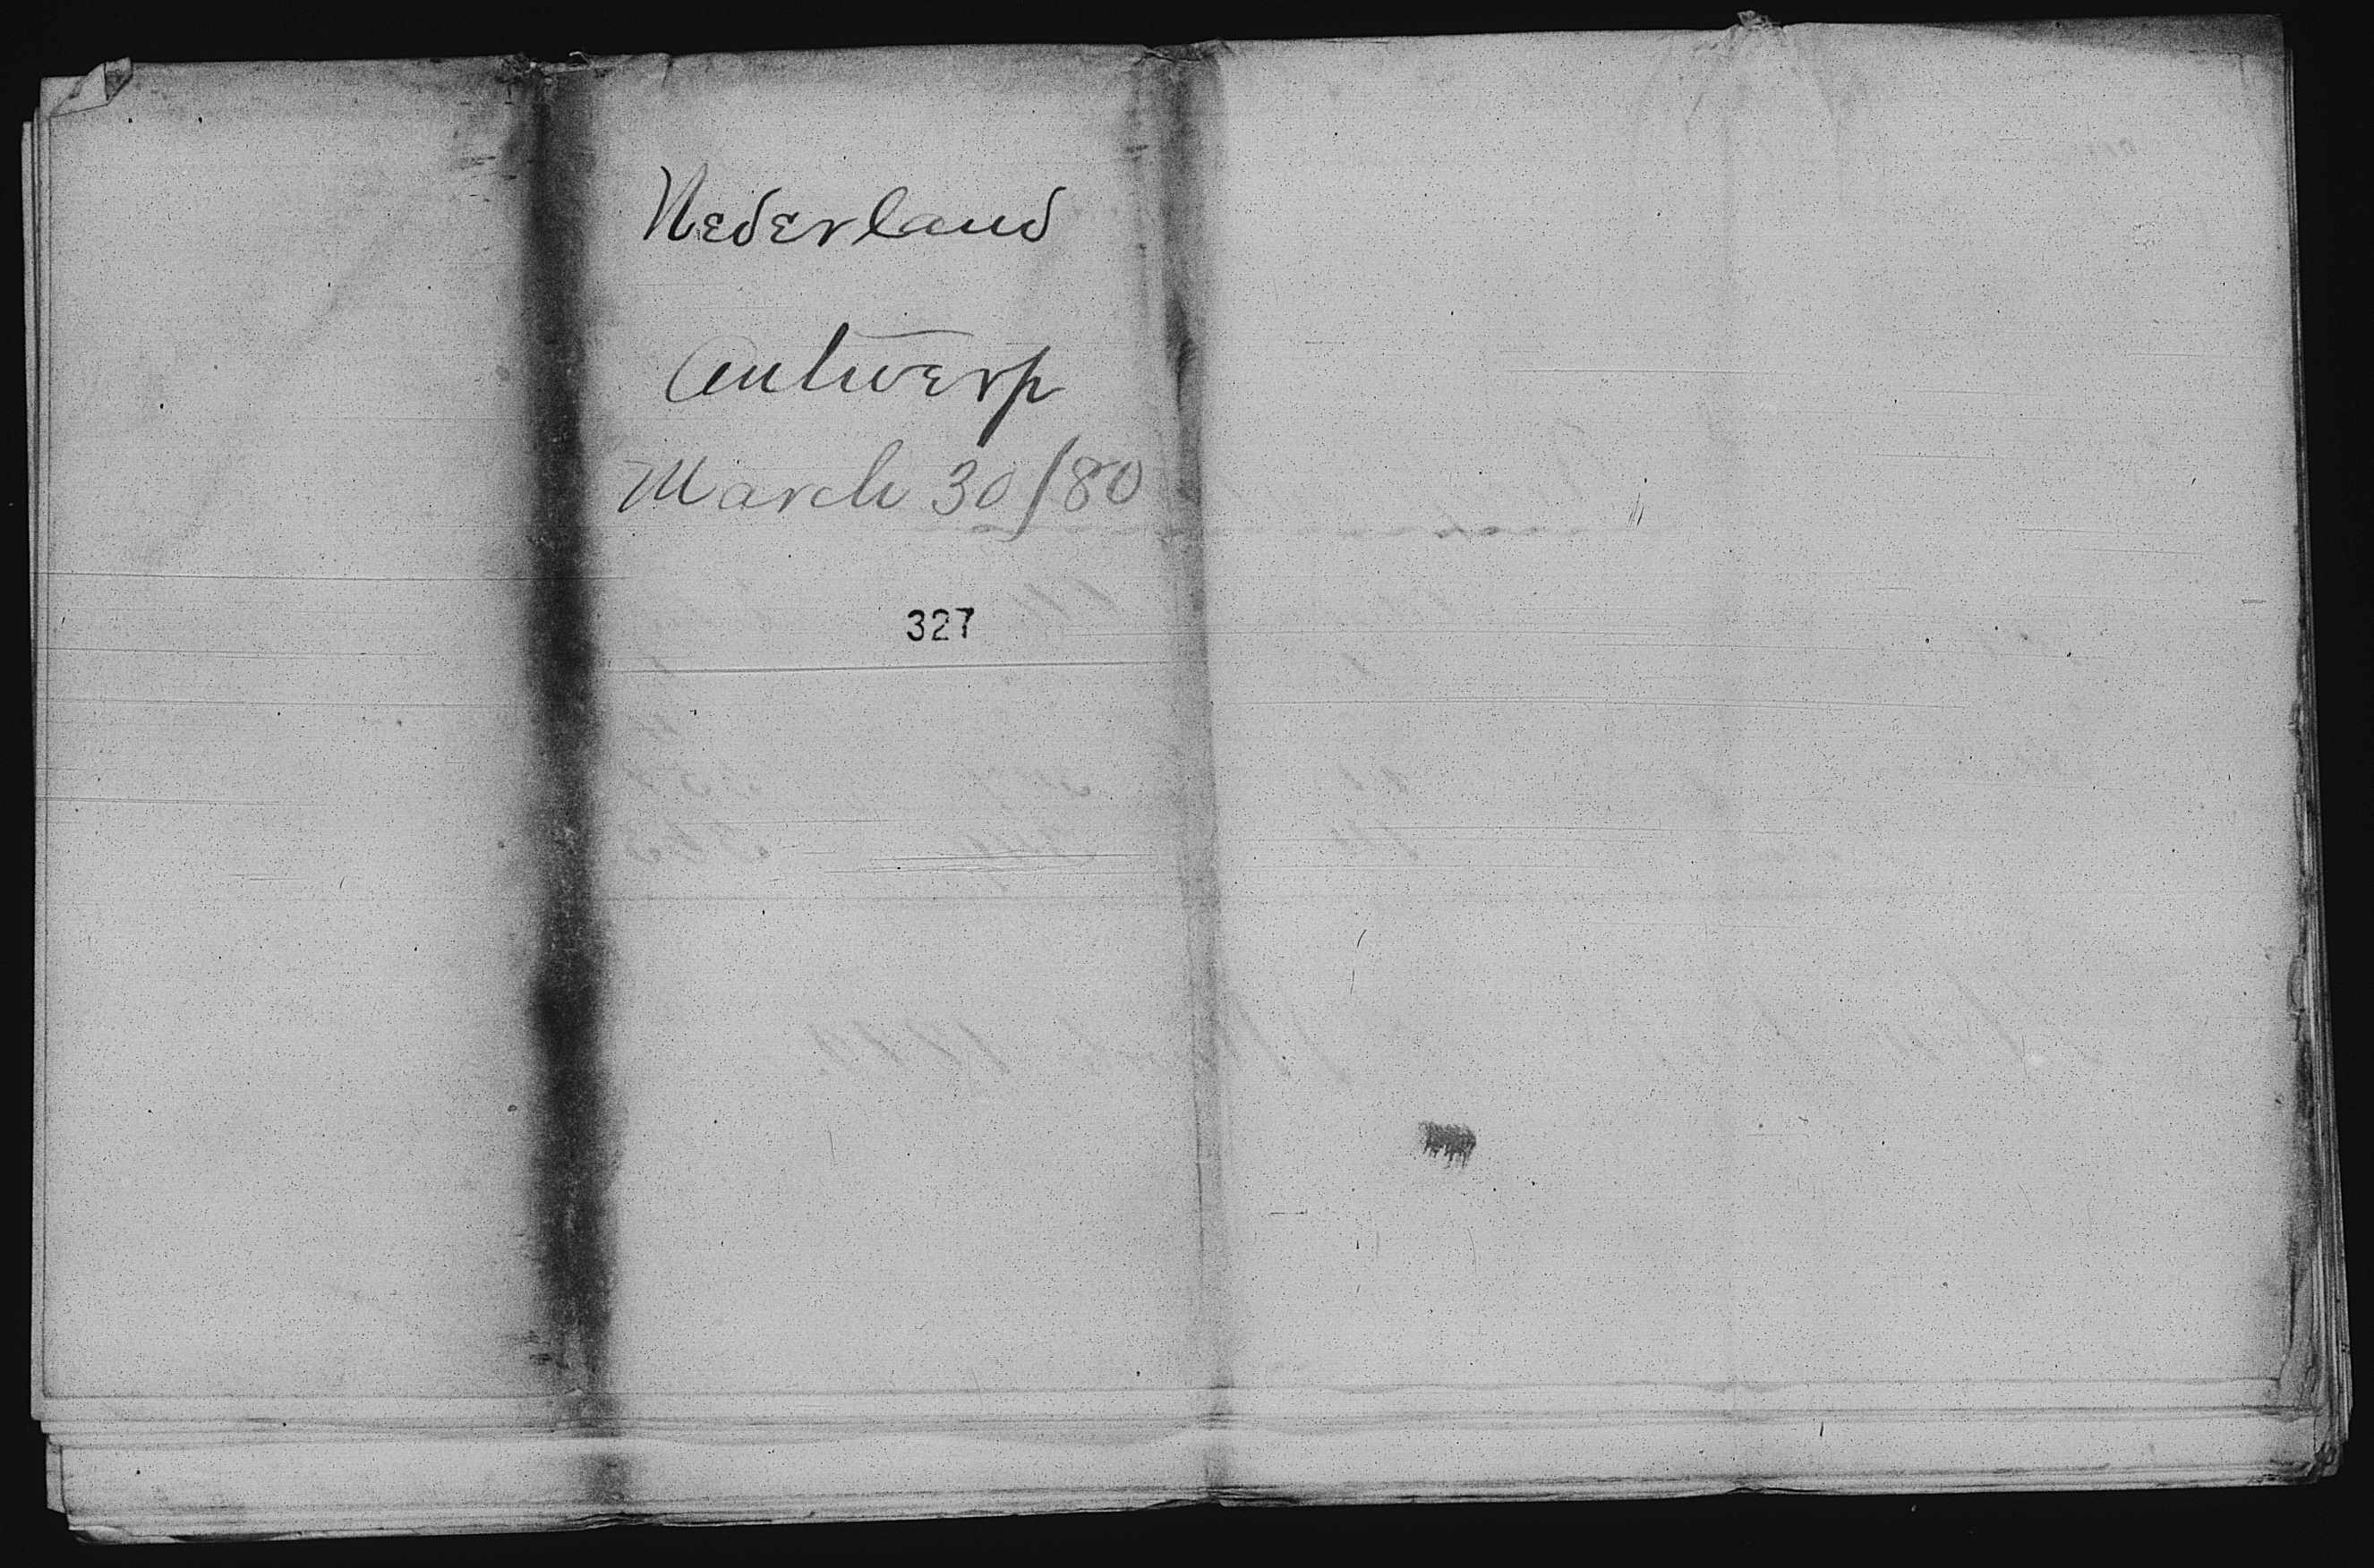 Nederland
Antwerp
March 30/80
327